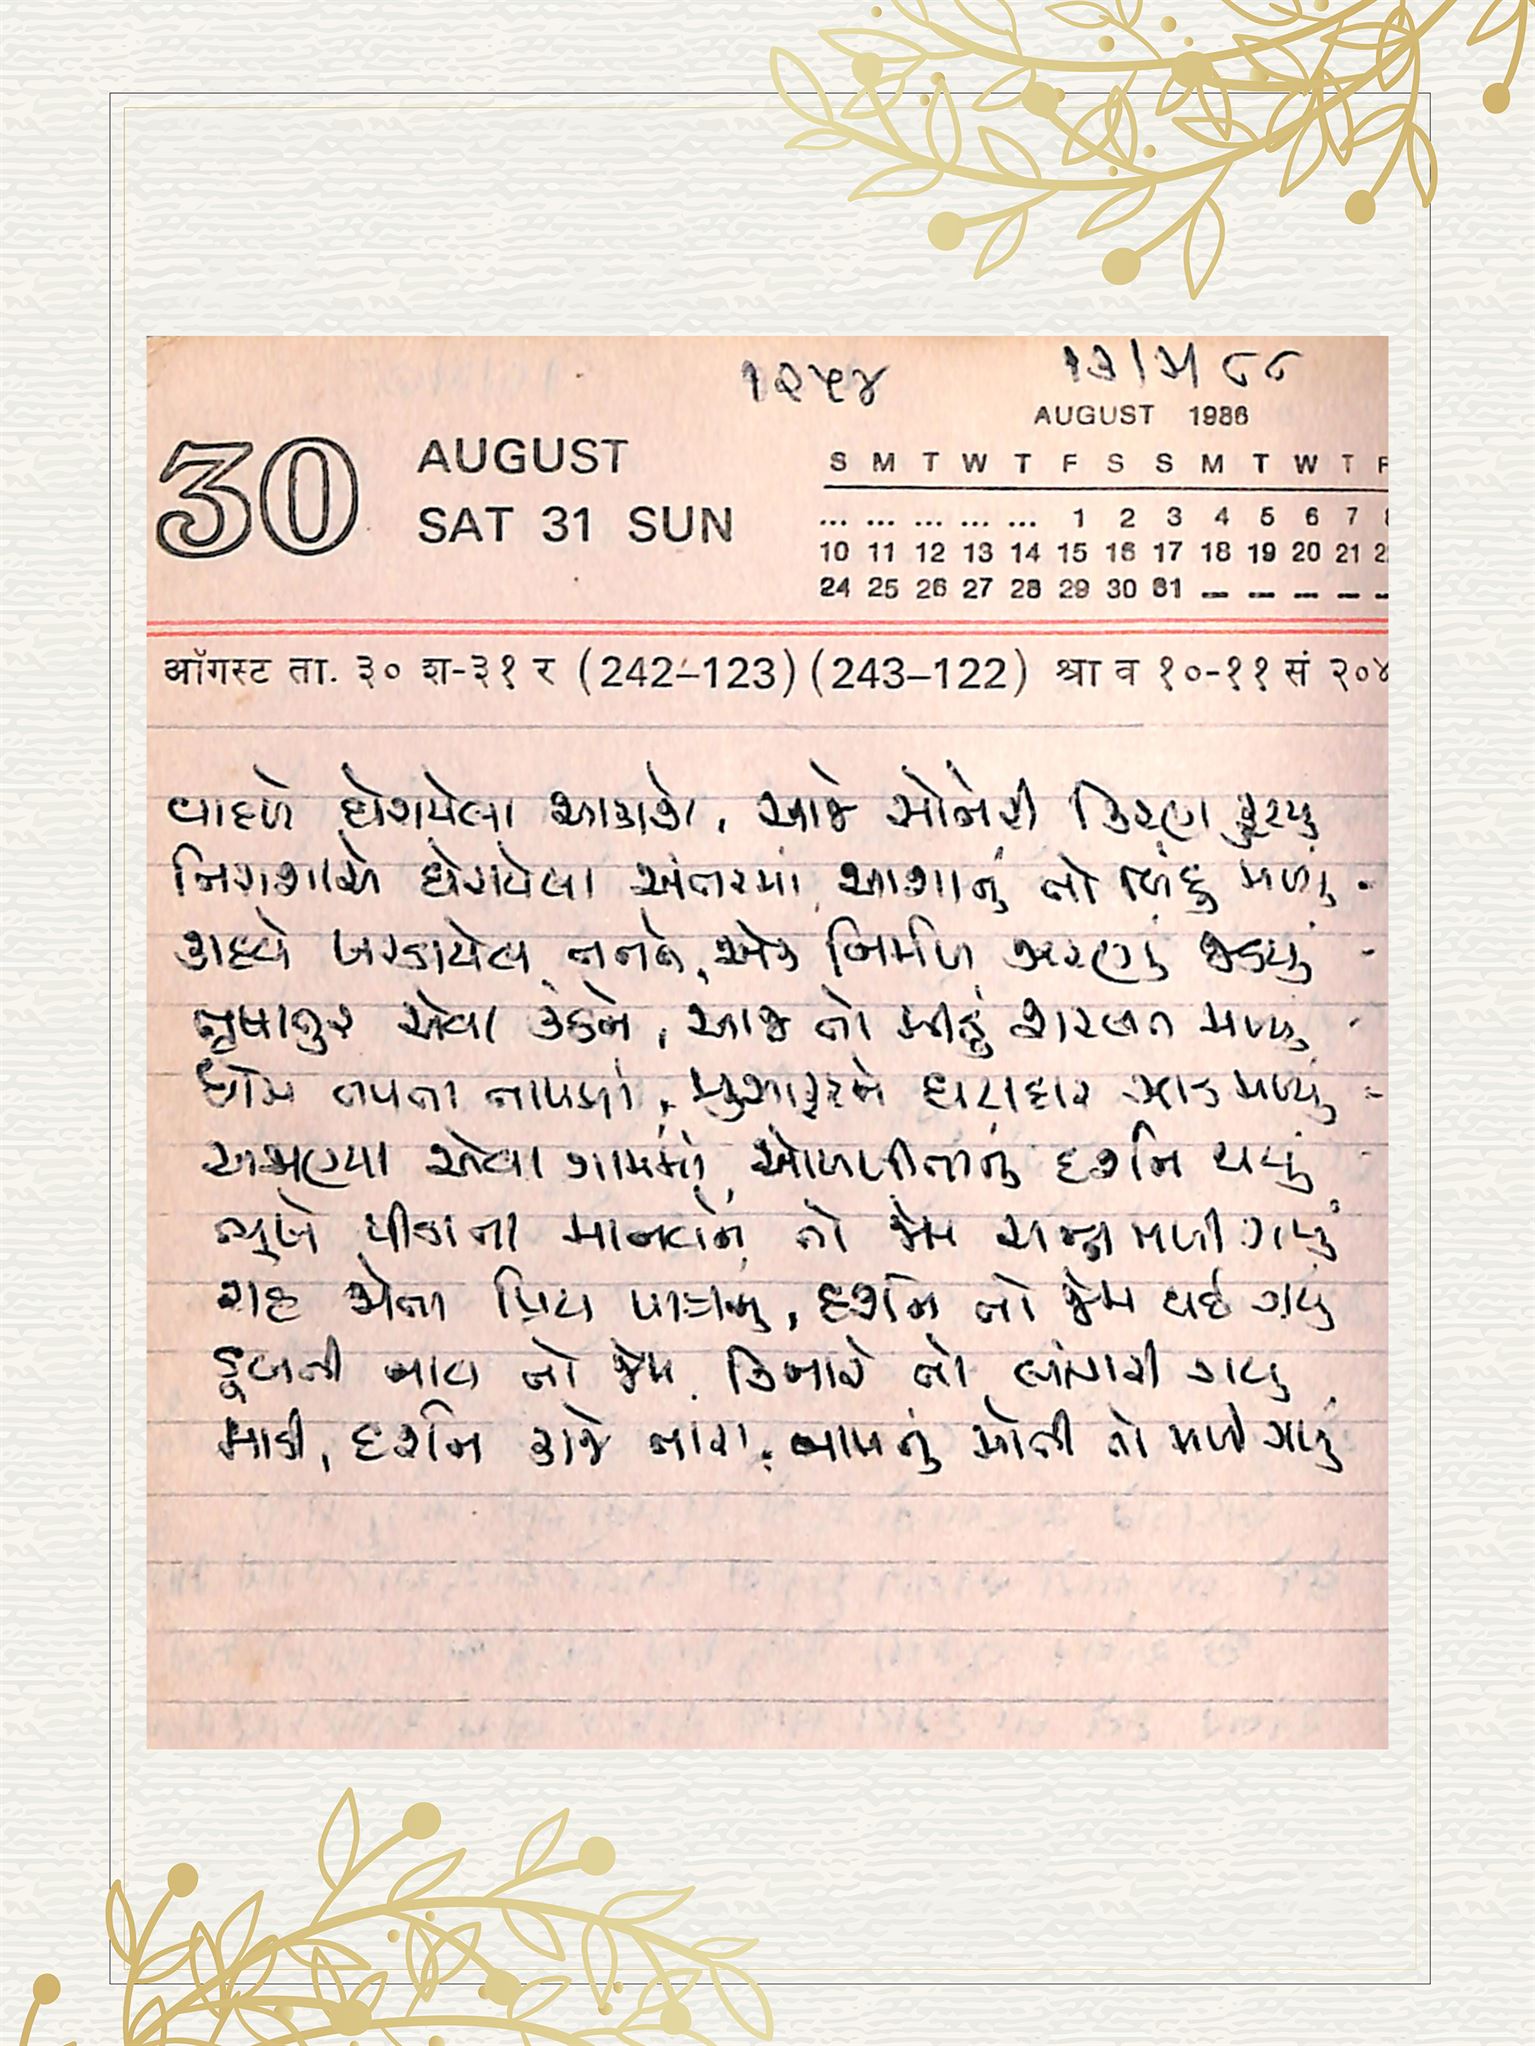 ૧૨૫૪ ૧૩/૫/૮૮
AUGUST 1986
30 AUGUST
SAT 31 SUN
S M T W T F S S M T W T F
... ... ... ... ... 1 2 3 4 5 6 7 8
10 11 12 13 14 15 16 17 18 19 20 21 2
24 25 26 27 28 29 30 31 — — — — —
ऑगस्ट ता. ३० श-३१ र (242–123) (243–122) श्रा व १०-११ सं २०४
વાદળે ઘેરાયેલા આકાશે, આજે સોનેરી કિરણ ફૂટયું
નિરાશાએ ઘેરાયેલા અંતરમાં, આશાનું તો બિંદુ મળ્યું
કાદવે ખરડાયેલ તનને, એક નિર્મળ ઝરણું જડયું
તૃષાતુર એવા કંઠને, આજ તો મીઠું શરબત મળ્યું
ધોમ તપતા તાપમાં, મુસાફરને ઘટાદાર ઝાડ મળ્યું
અજાણ્યા એવા ગામમાં, ઓળખીતાનું દર્શન થયું
ભૂખે પીડાતા માનવીને, તો જેમ અન્ન મળી ગયું
રાહ જોતા પ્રિય પાત્રનું, દર્શન તો જેમ થઈ ગયું
ડૂબતી નાવ તો જેમ કિનારે તો લાંગરી ગયું
માડી, દર્શન કાજે તારા, નામનું મોતી તો મળી ગયું